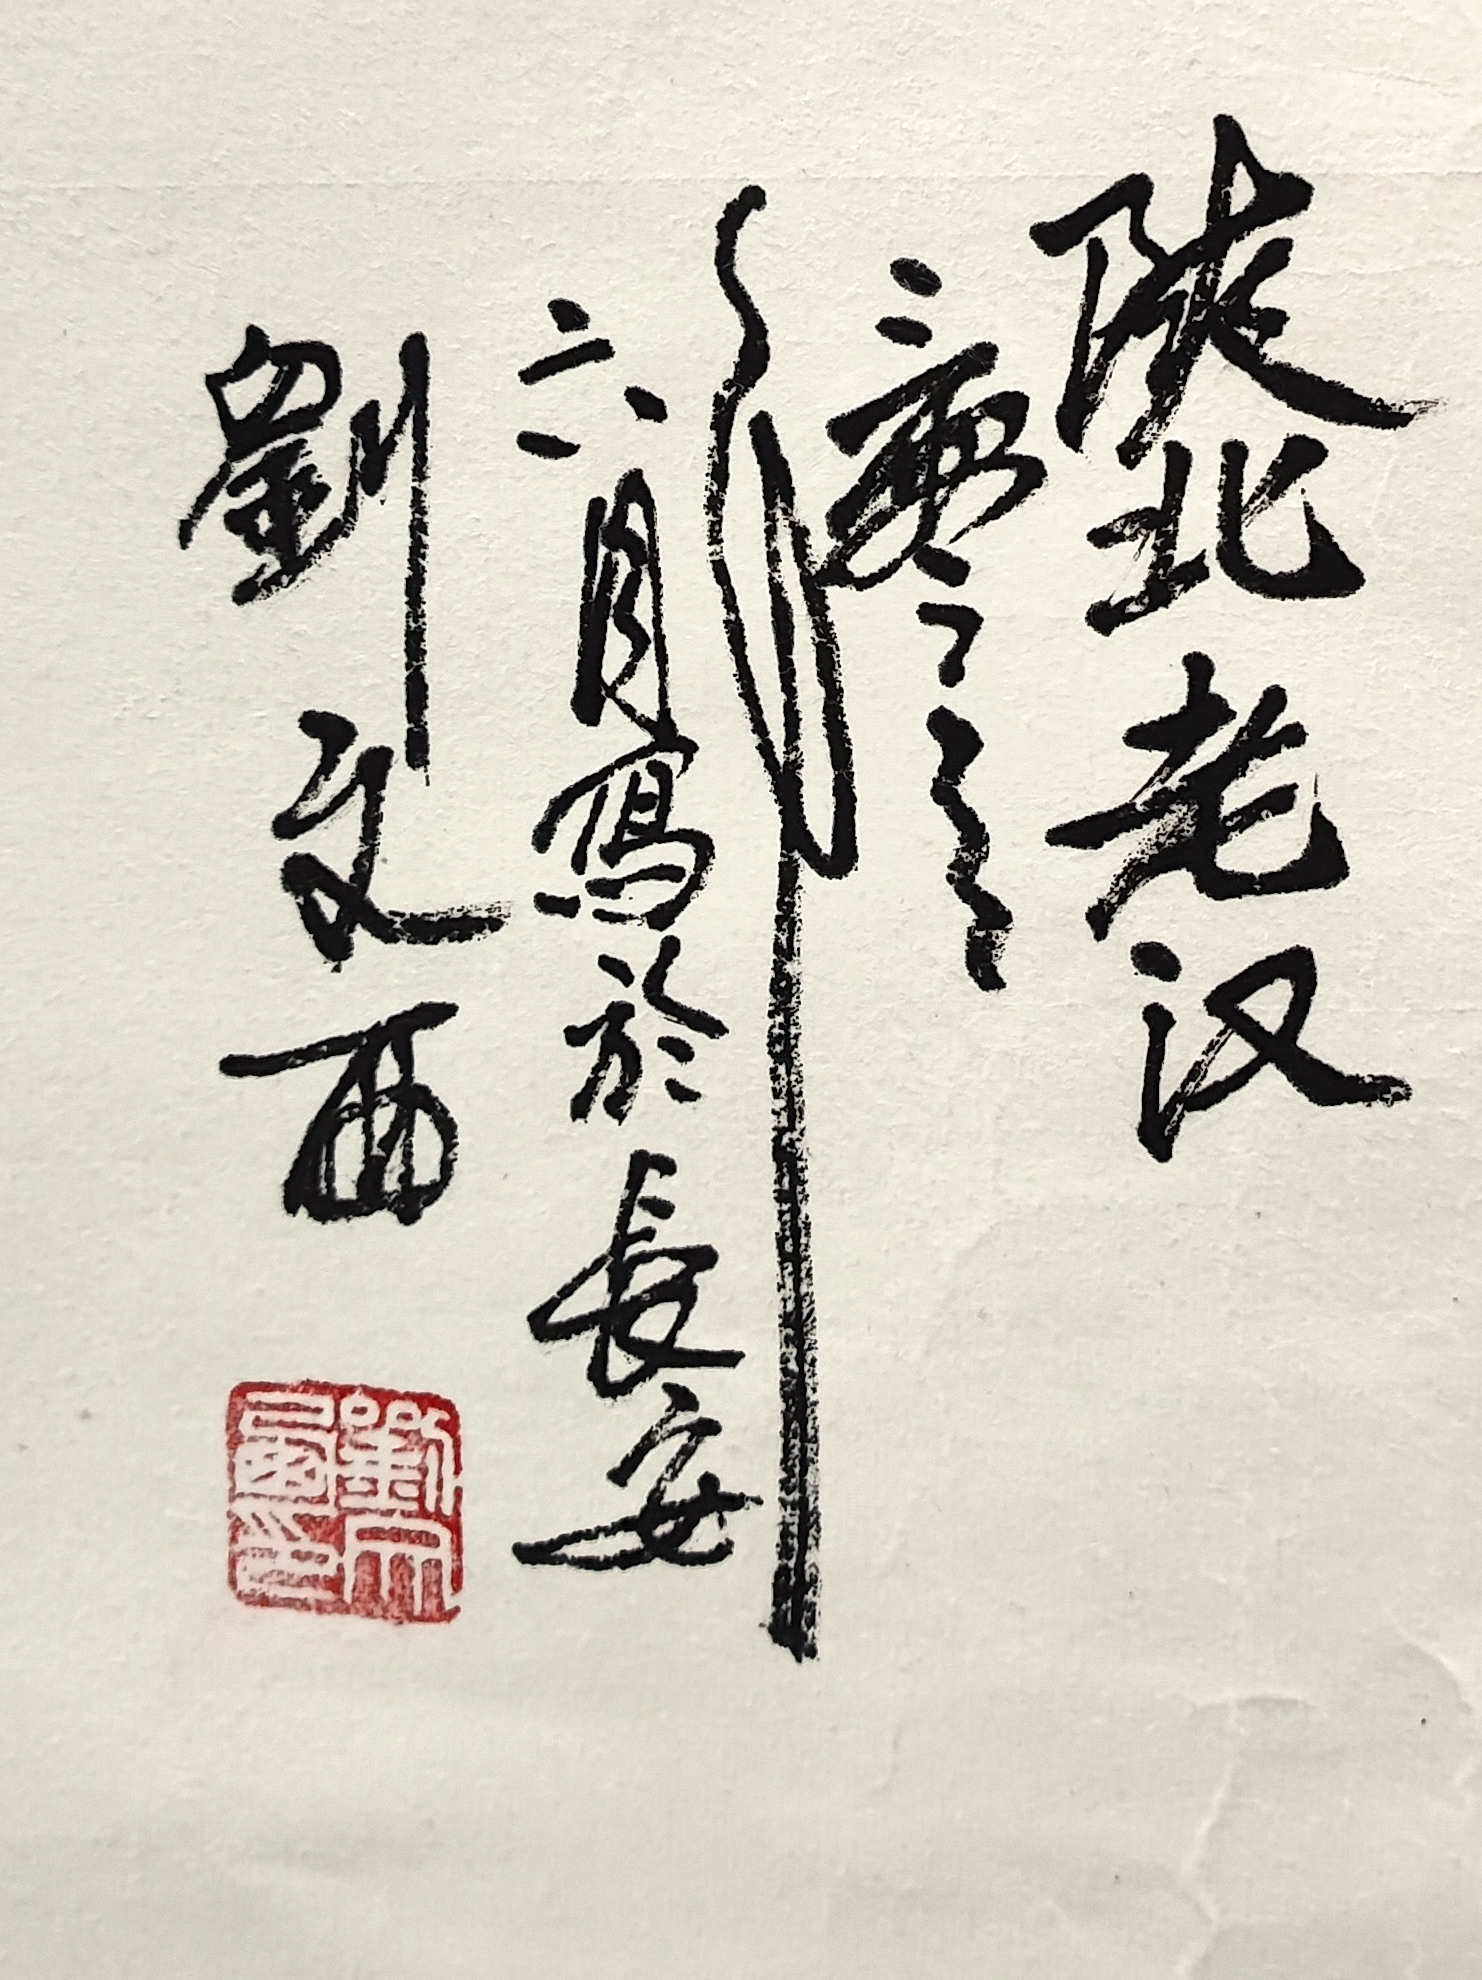 陕北老汉
二零
年
六月寫於長安
劉文西
劉文西印